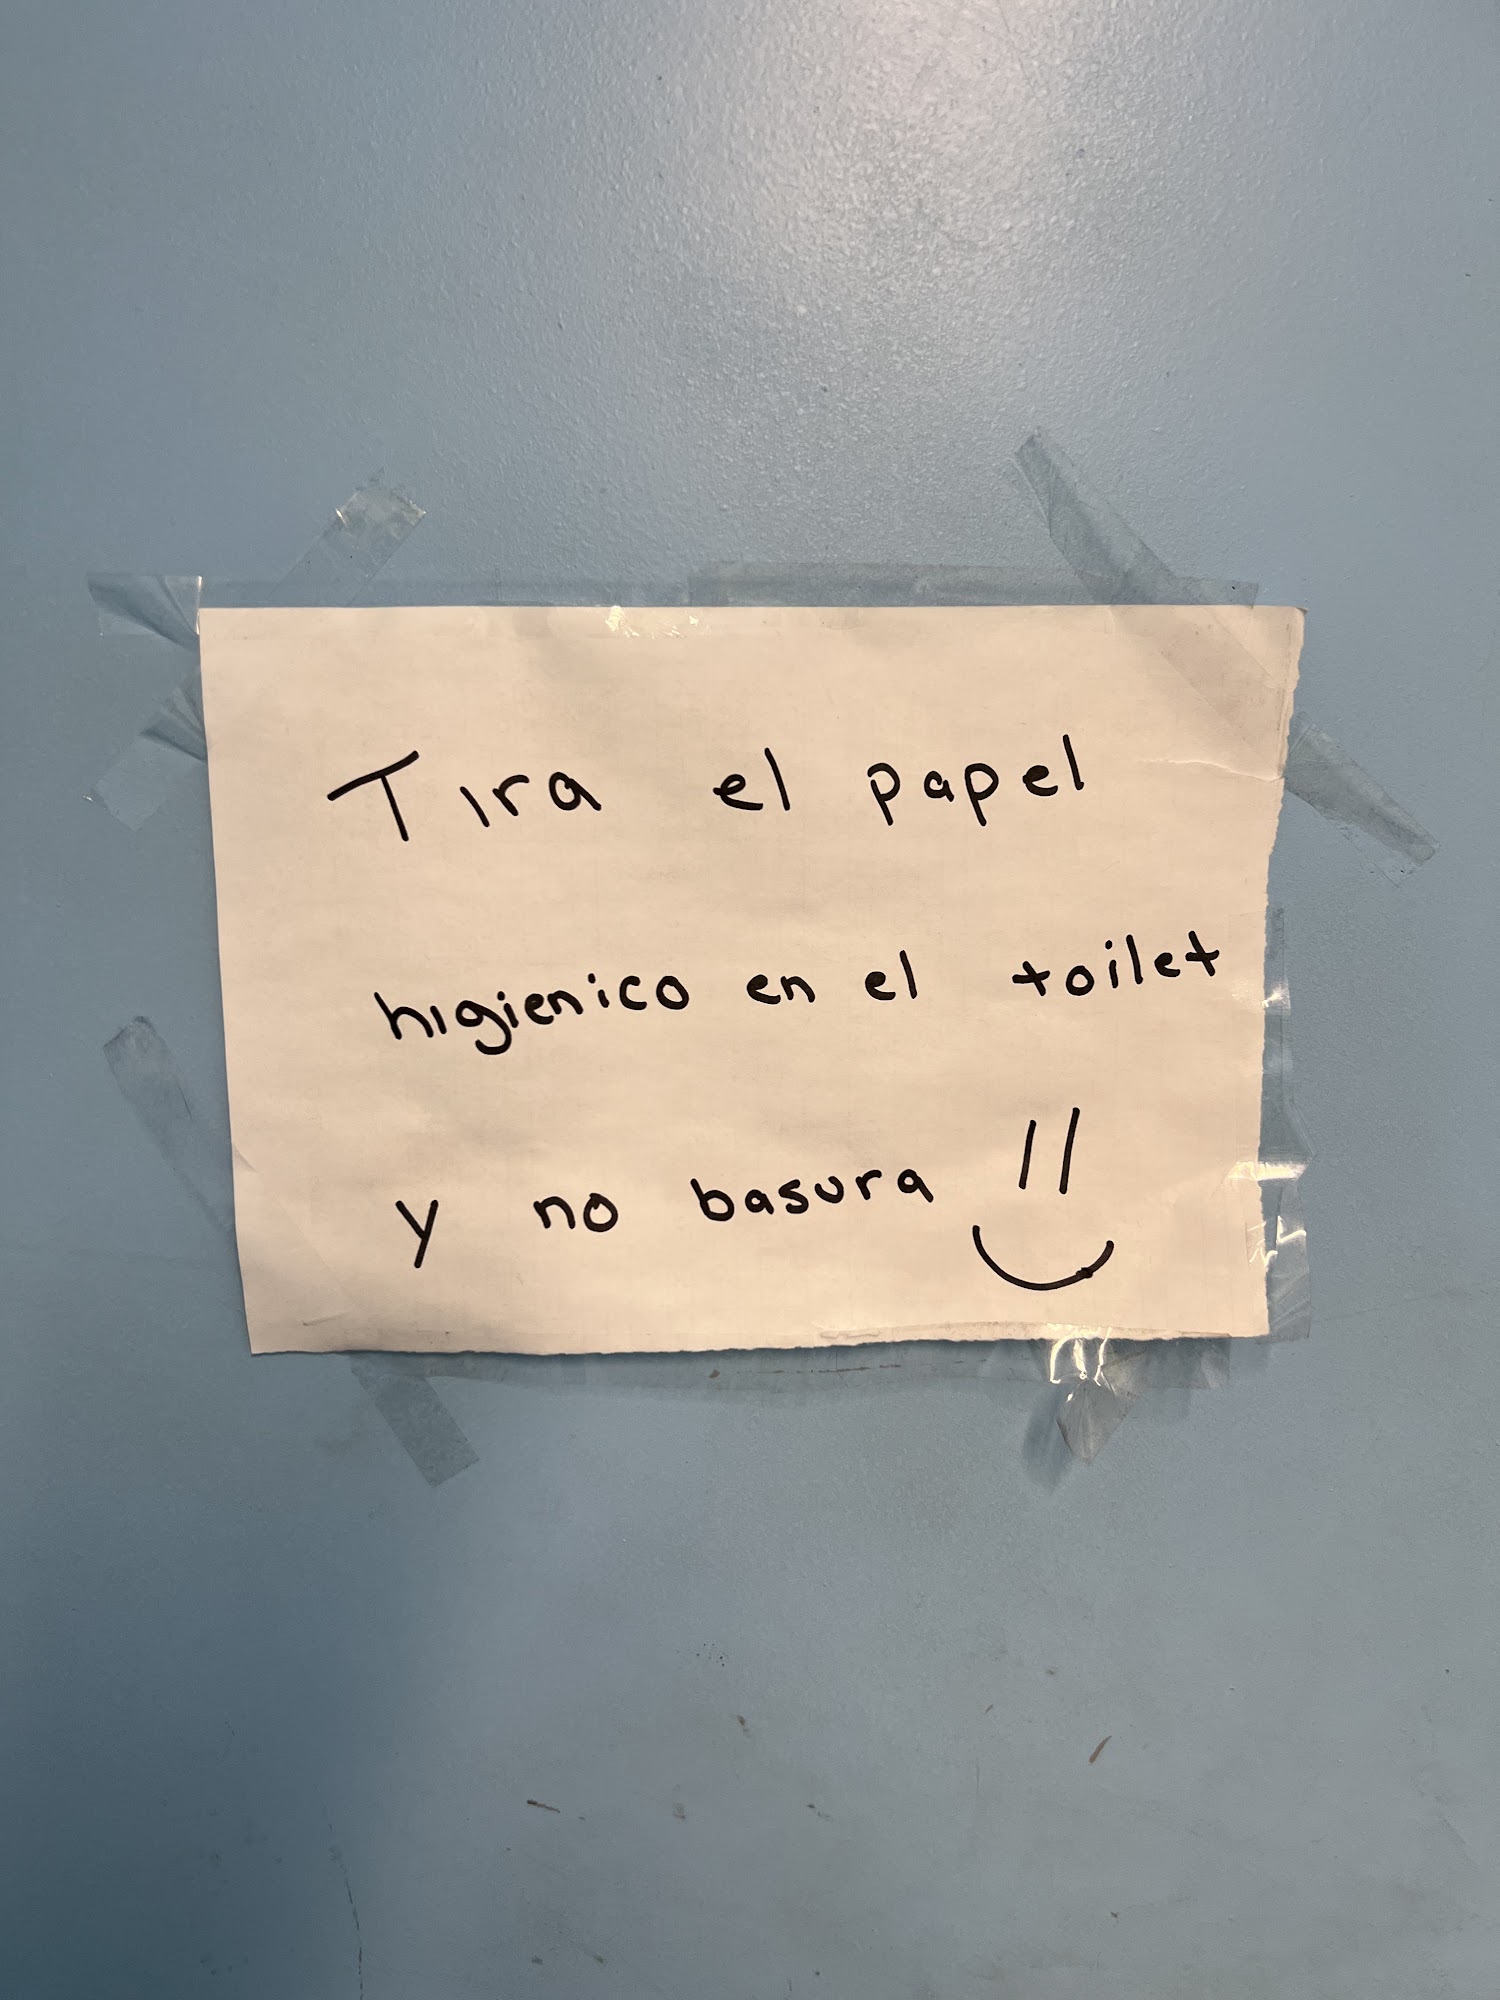 Tira el papel
higienico en el toilet
y no basura